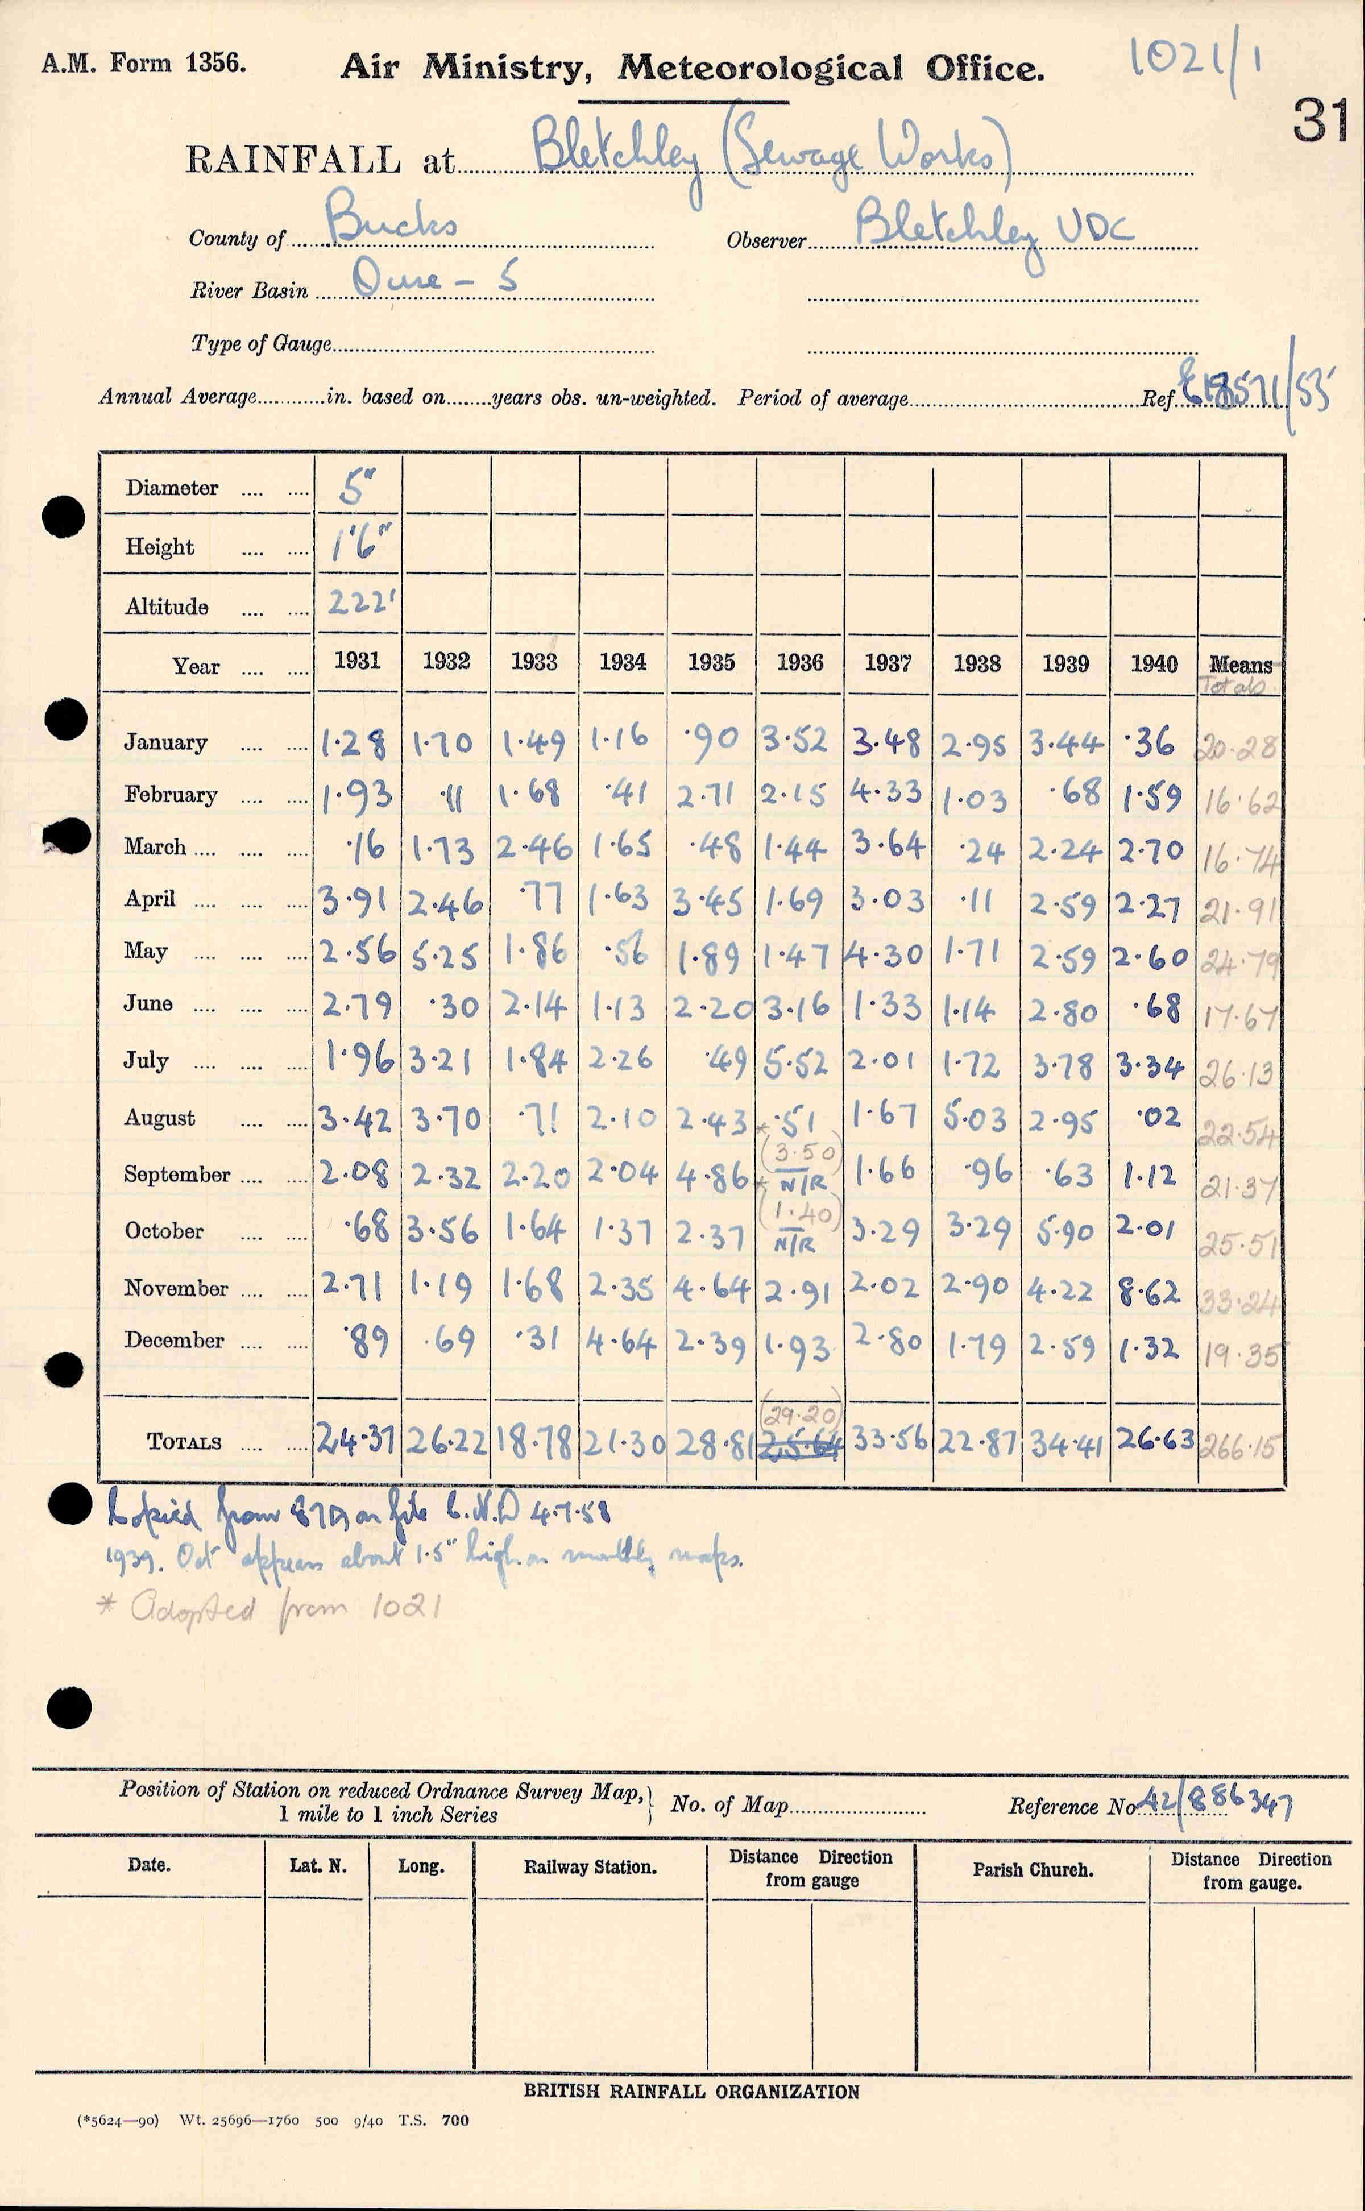 A.M. Form 1356. Air Ministry, Meteorological Office. 1021/1
31
RAINFALL at Bletchley (Sewage Works)
County of Bucks Observer Bletchley UDC
River Basin Ouse - 5
Type of Gauge
Annual Average in. based on years obs. un-weighted. Period of average Ref. E18571/53
Diameter 5"
Height 1'6"
Altitude 222'
Year 1931 1932 1933 1934 1935 1936 1937 1938 1939 1940 Means
Totals
January 1.28 1.70 1.49 1.16 .90 3.52 3.48 2.95 3.44 .36 20.28
February 1.93 .11 1.68 .41 2.71 2.15 4.33 1.03 .68 1.59 16.62
March .16 1.73 2.46 1.65 .48 1.44 3.64 .24 2.24 2.70 16.74
April 3.91 2.46 .77 1.63 3.45 1.69 3.03 .11 2.59 2.27 21.91
May 2.56 5.25 1.86 .56 1.89 1.47 4.30 1.71 2.59 2.60 24.79
June 2.79 .30 2.14 1.13 2.20 3.16 1.33 1.14 2.80 .68 17.67
July 1.96 3.21 1.84 2.26 .49 5.52 2.01 1.72 3.78 3.34 26.13
August 3.42 3.70 .71 2.10 2.43 .51 1.67 5.03 2.95 .02 22.54
* (3.50)
September 2.08 2.32 2.20 2.04 4.86 N/R 1.66 .96 .63 1.12 21.37
* (1.40)
October .68 3.56 1.64 1.37 2.37 N/R 3.29 3.29 5.90 2.01 25.51
November 2.71 1.19 1.68 2.35 4.64 2.91 2.02 2.90 4.22 8.62 33.24
December .89 .69 .31 4.64 2.39 1.93 2.80 1.79 2.59 1.32 19.35
(29.20)
TOTALS 24.37 26.22 18.78 21.30 28.81 25.64 33.56 22.87 34.41 26.63 266.15
Copied from on file 4.7.58
1939. Oct appears about 1.5" high on monthly maps.
* Adopted from 1021
Position of Station on reduced Ordnance Survey Map,} No. of Map Reference No 42/886347
1 mile to 1 inch Series
Date. Lat. N. Long. Railway Station. Distance Direction from gauge Parish Church. Distance Direction from gauge.
BRITISH RAINFALL ORGANIZATION
(*5624—90) Wt. 25696—1760 500 9/40 T.S. 700